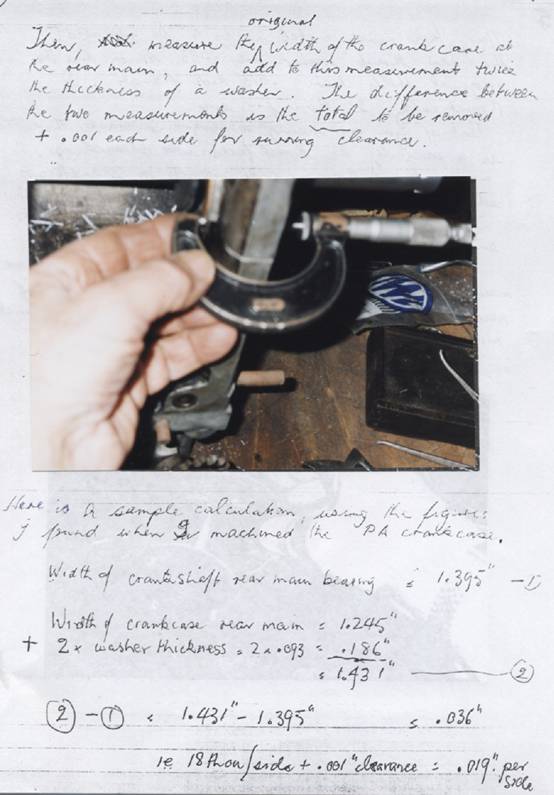 original
Then, measure the width of the crank case at
the rear main, and add to this measurement twice
the thickness of a washer. The difference between
the two measurements is the total to be removed
+ .001 each side for running clearance.
Here is a sample calculation, using the figures
I found when I machined the PA crankcase.
Width of crankshaft rear main bearing = 1.395" - 1
Width of crankcase rear main = 1.245"
+ 2 x washer thickness = 2 x .093 = .186"
= 1.431" 2
2 - 1 = 1.431" - 1.395" = .036"
ie 18 thou/side + .001" clearance = .019" per
side